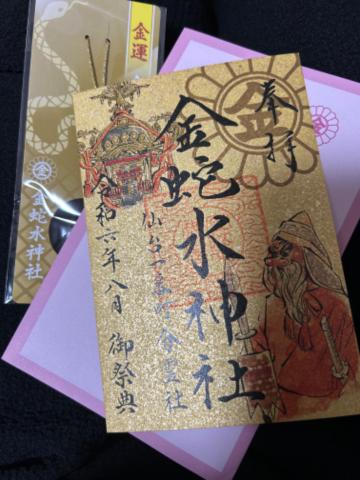 金運
㊎金蛇水神社
奉拝
金
金蛇水神社
仙台一番町分霊社
令和六年八月 御祭典